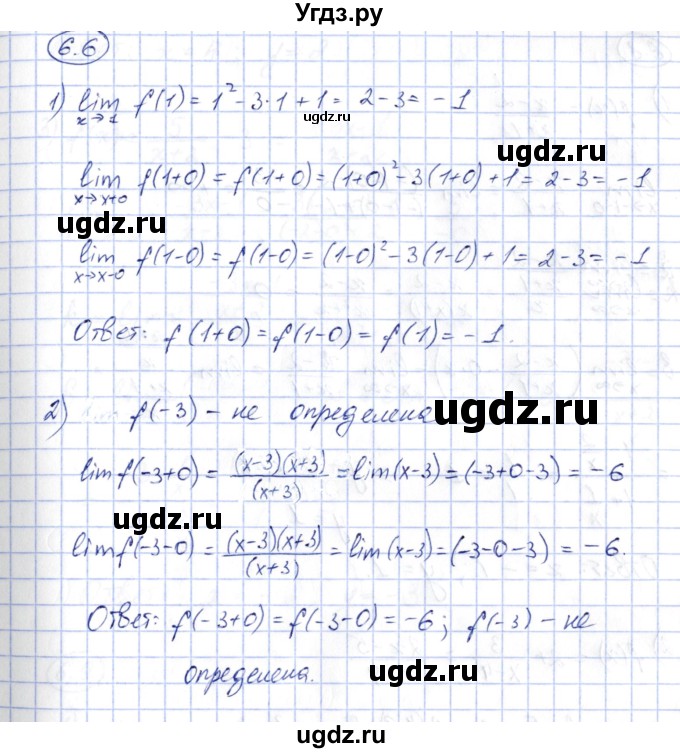 Угдз.ру
6.6
1) lim f(1) = 1² - 3·1 + 1 = 2 - 3 = -1
x→1
ugdz.ru
ugdz.ru
lim f(1+0) = f(1+0) = (1+0)² - 3(1+0) + 1 = 2 - 3 = -1
x→x+0
ugdz.ru
lim f(1-0) = f(1-0) = (1-0)² - 3(1-0) + 1 = 2 - 3 = -1
x→x-0
ugdz.ru
Ответ: f(1+0) = f(1-0) = f(1) = -1.
2) f(-3) - не определена
ugdz.ru
lim f(-3+0) = (x-3)(x+3)/(x+3) = lim(x-3) = (-3+0-3) = -6
ugdz.ru
lim f(-3-0) = (x-3)(x+3)/(x+3) = lim(x-3) = (-3-0-3) = -6.
Ответ: f(-3+0) = f(-3-0) = -6; f(-3) - не
ugdz.ru
определена.
ugdz.ru